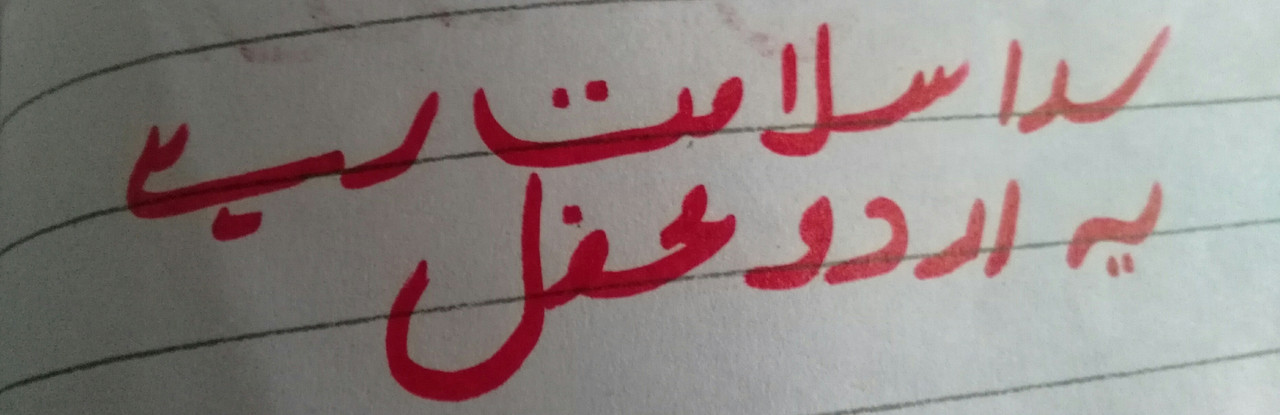 سدا سلامت رہے
یہ اردو محفل